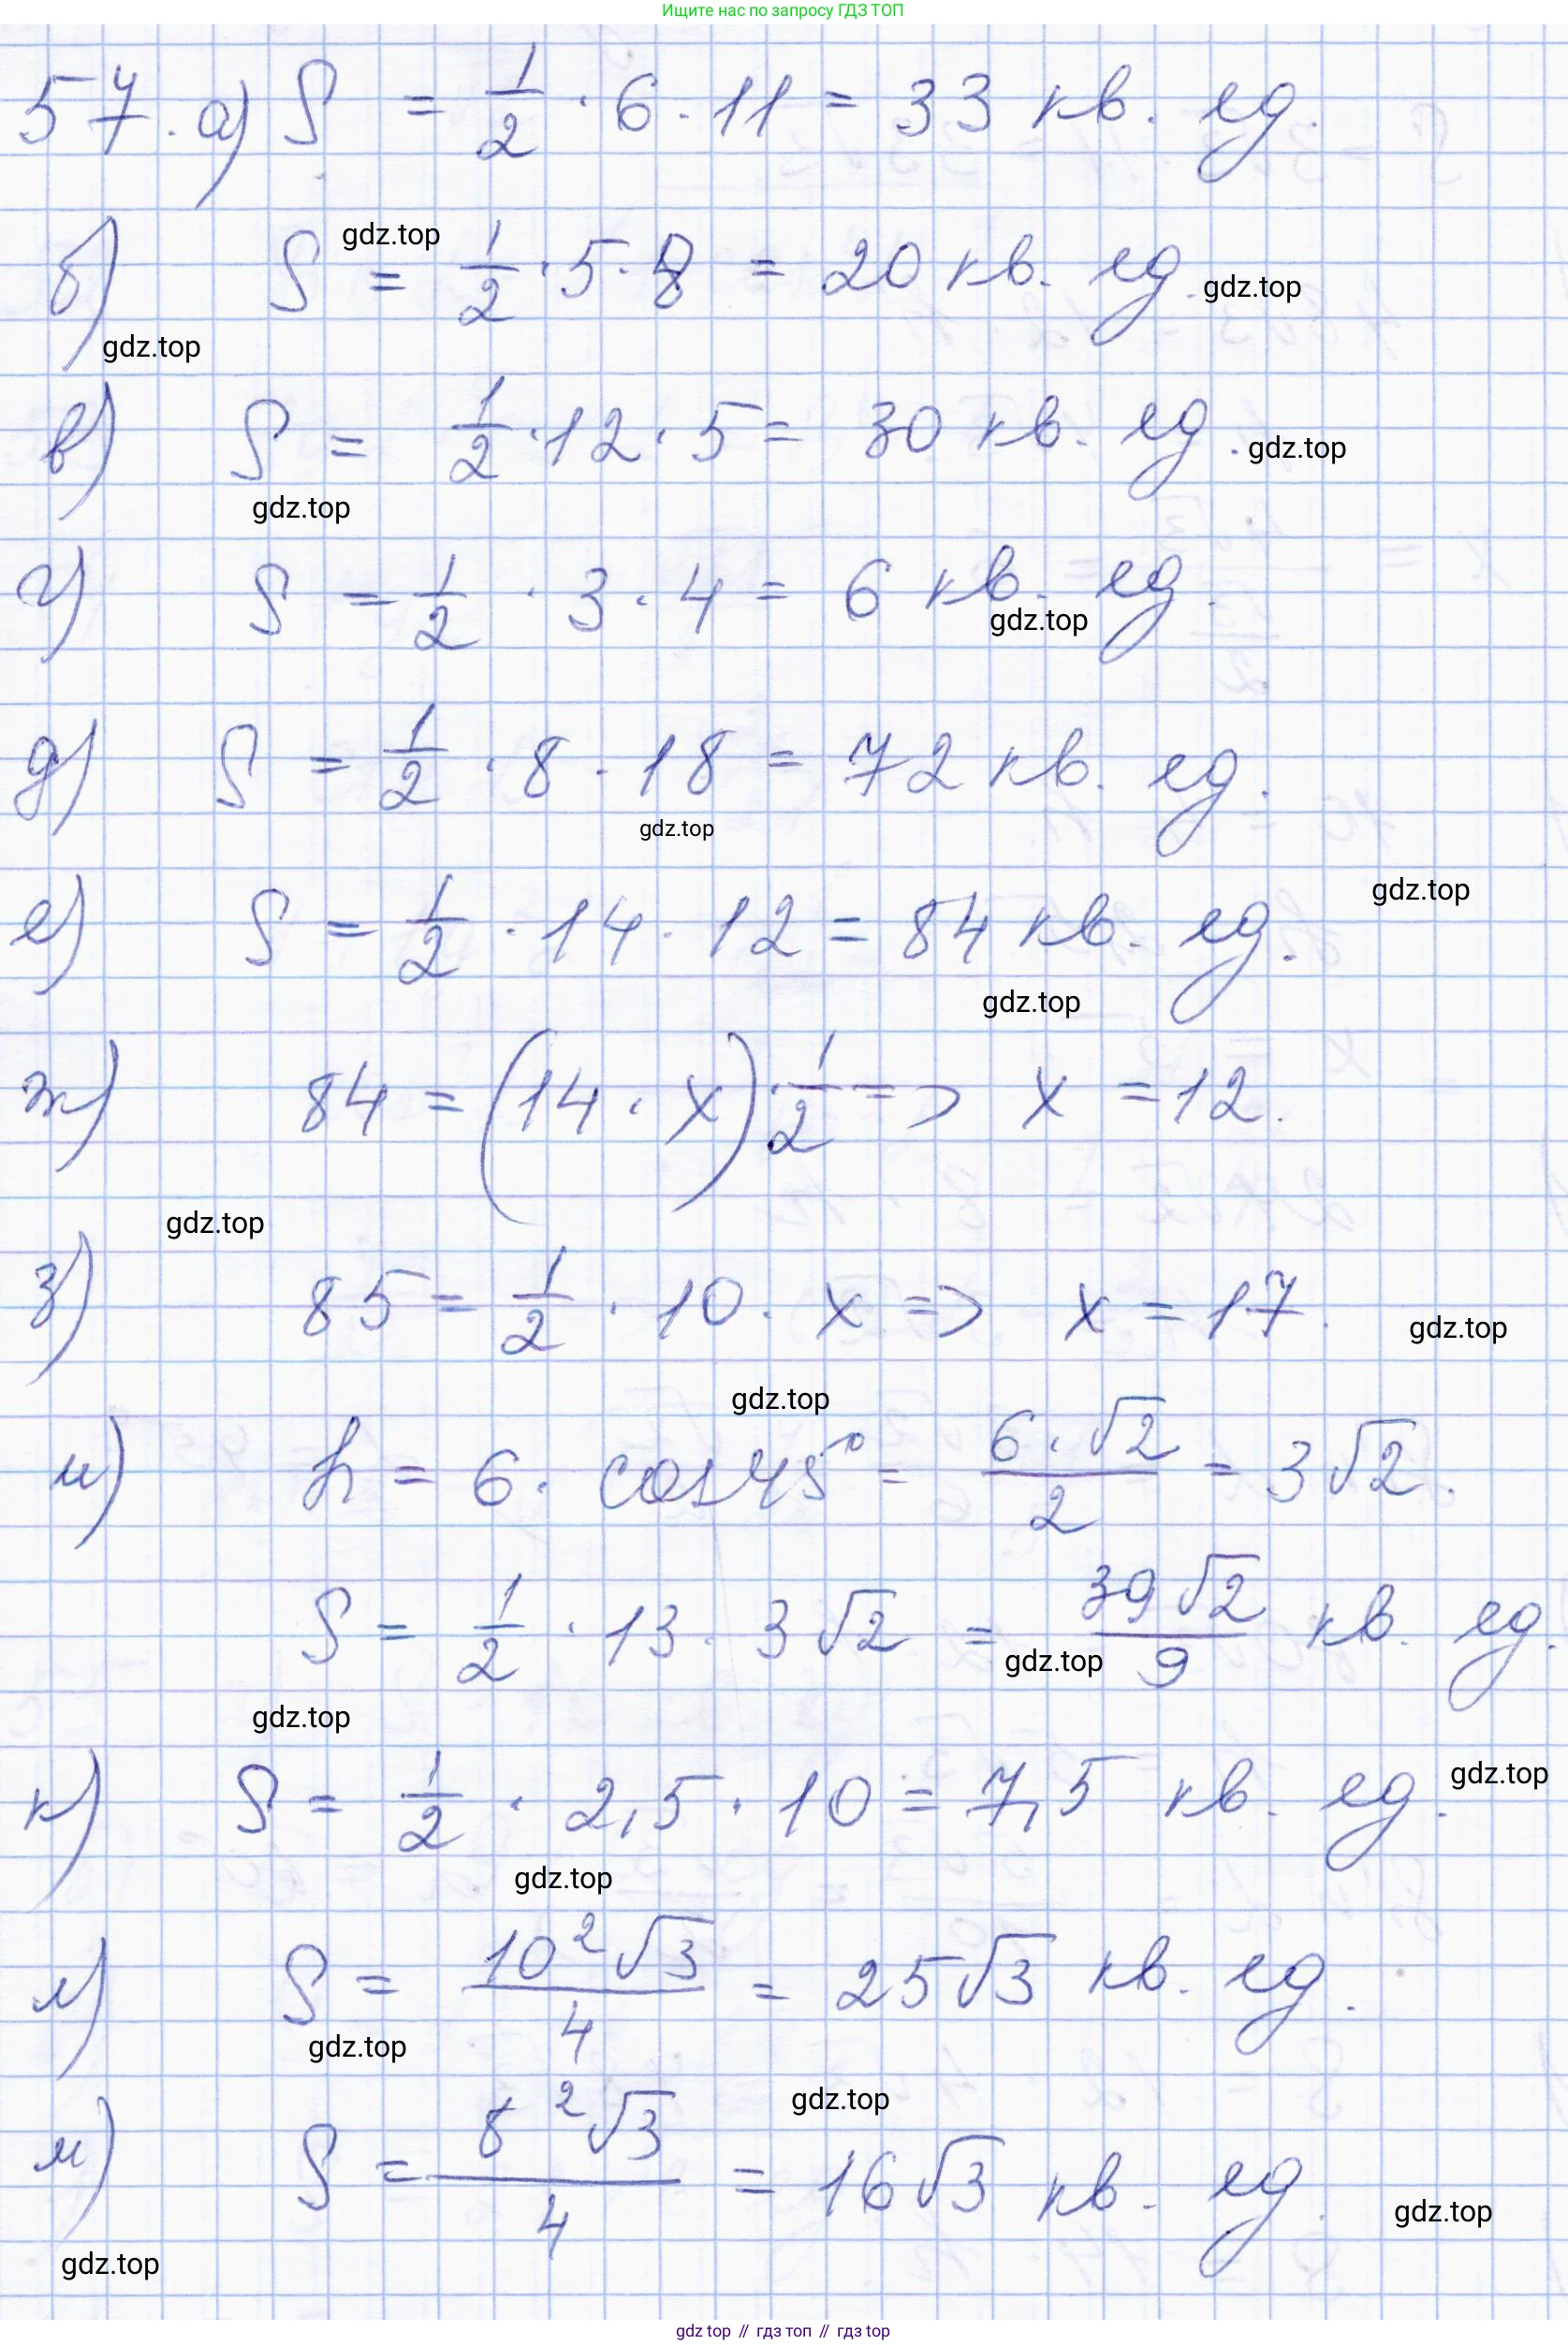 Ищите нас по запросу ГДЗ ТОП
57. а) S = 1/2 · 6 · 11 = 33 кв. ед.
gdz.top
б) S = 1/2 · 5 · 8 = 20 кв. ед.
gdz.top
gdz.top
в) S = 1/2 · 12 · 5 = 30 кв. ед.
gdz.top
gdz.top
г) S = 1/2 · 3 · 4 = 6 кв. ед.
gdz.top
д) S = 1/2 · 8 · 18 = 72 кв. ед.
gdz.top
gdz.top
е) S = 1/2 · 14 · 12 = 84 кв. ед.
gdz.top
ж) 84 = (14 · x) · 1/2 => x = 12.
gdz.top
з) 85 = 1/2 · 10 · x => x = 17.
gdz.top
gdz.top
и) h = 6 · cos 45° = 6 · √2/2 = 3√2.
S = 1/2 · 13 · 3√2 = 39√2/9 кв. ед.
gdz.top
gdz.top
gdz.top
к) S = 1/2 · 2,5 · 10 = 7,5 кв. ед.
gdz.top
л) S = 10²√3/4 = 25√3 кв. ед.
gdz.top
gdz.top
м) S = 8²√3/4 = 16√3 кв. ед.
gdz.top
gdz.top
gdz top // гдз топ // гдз top